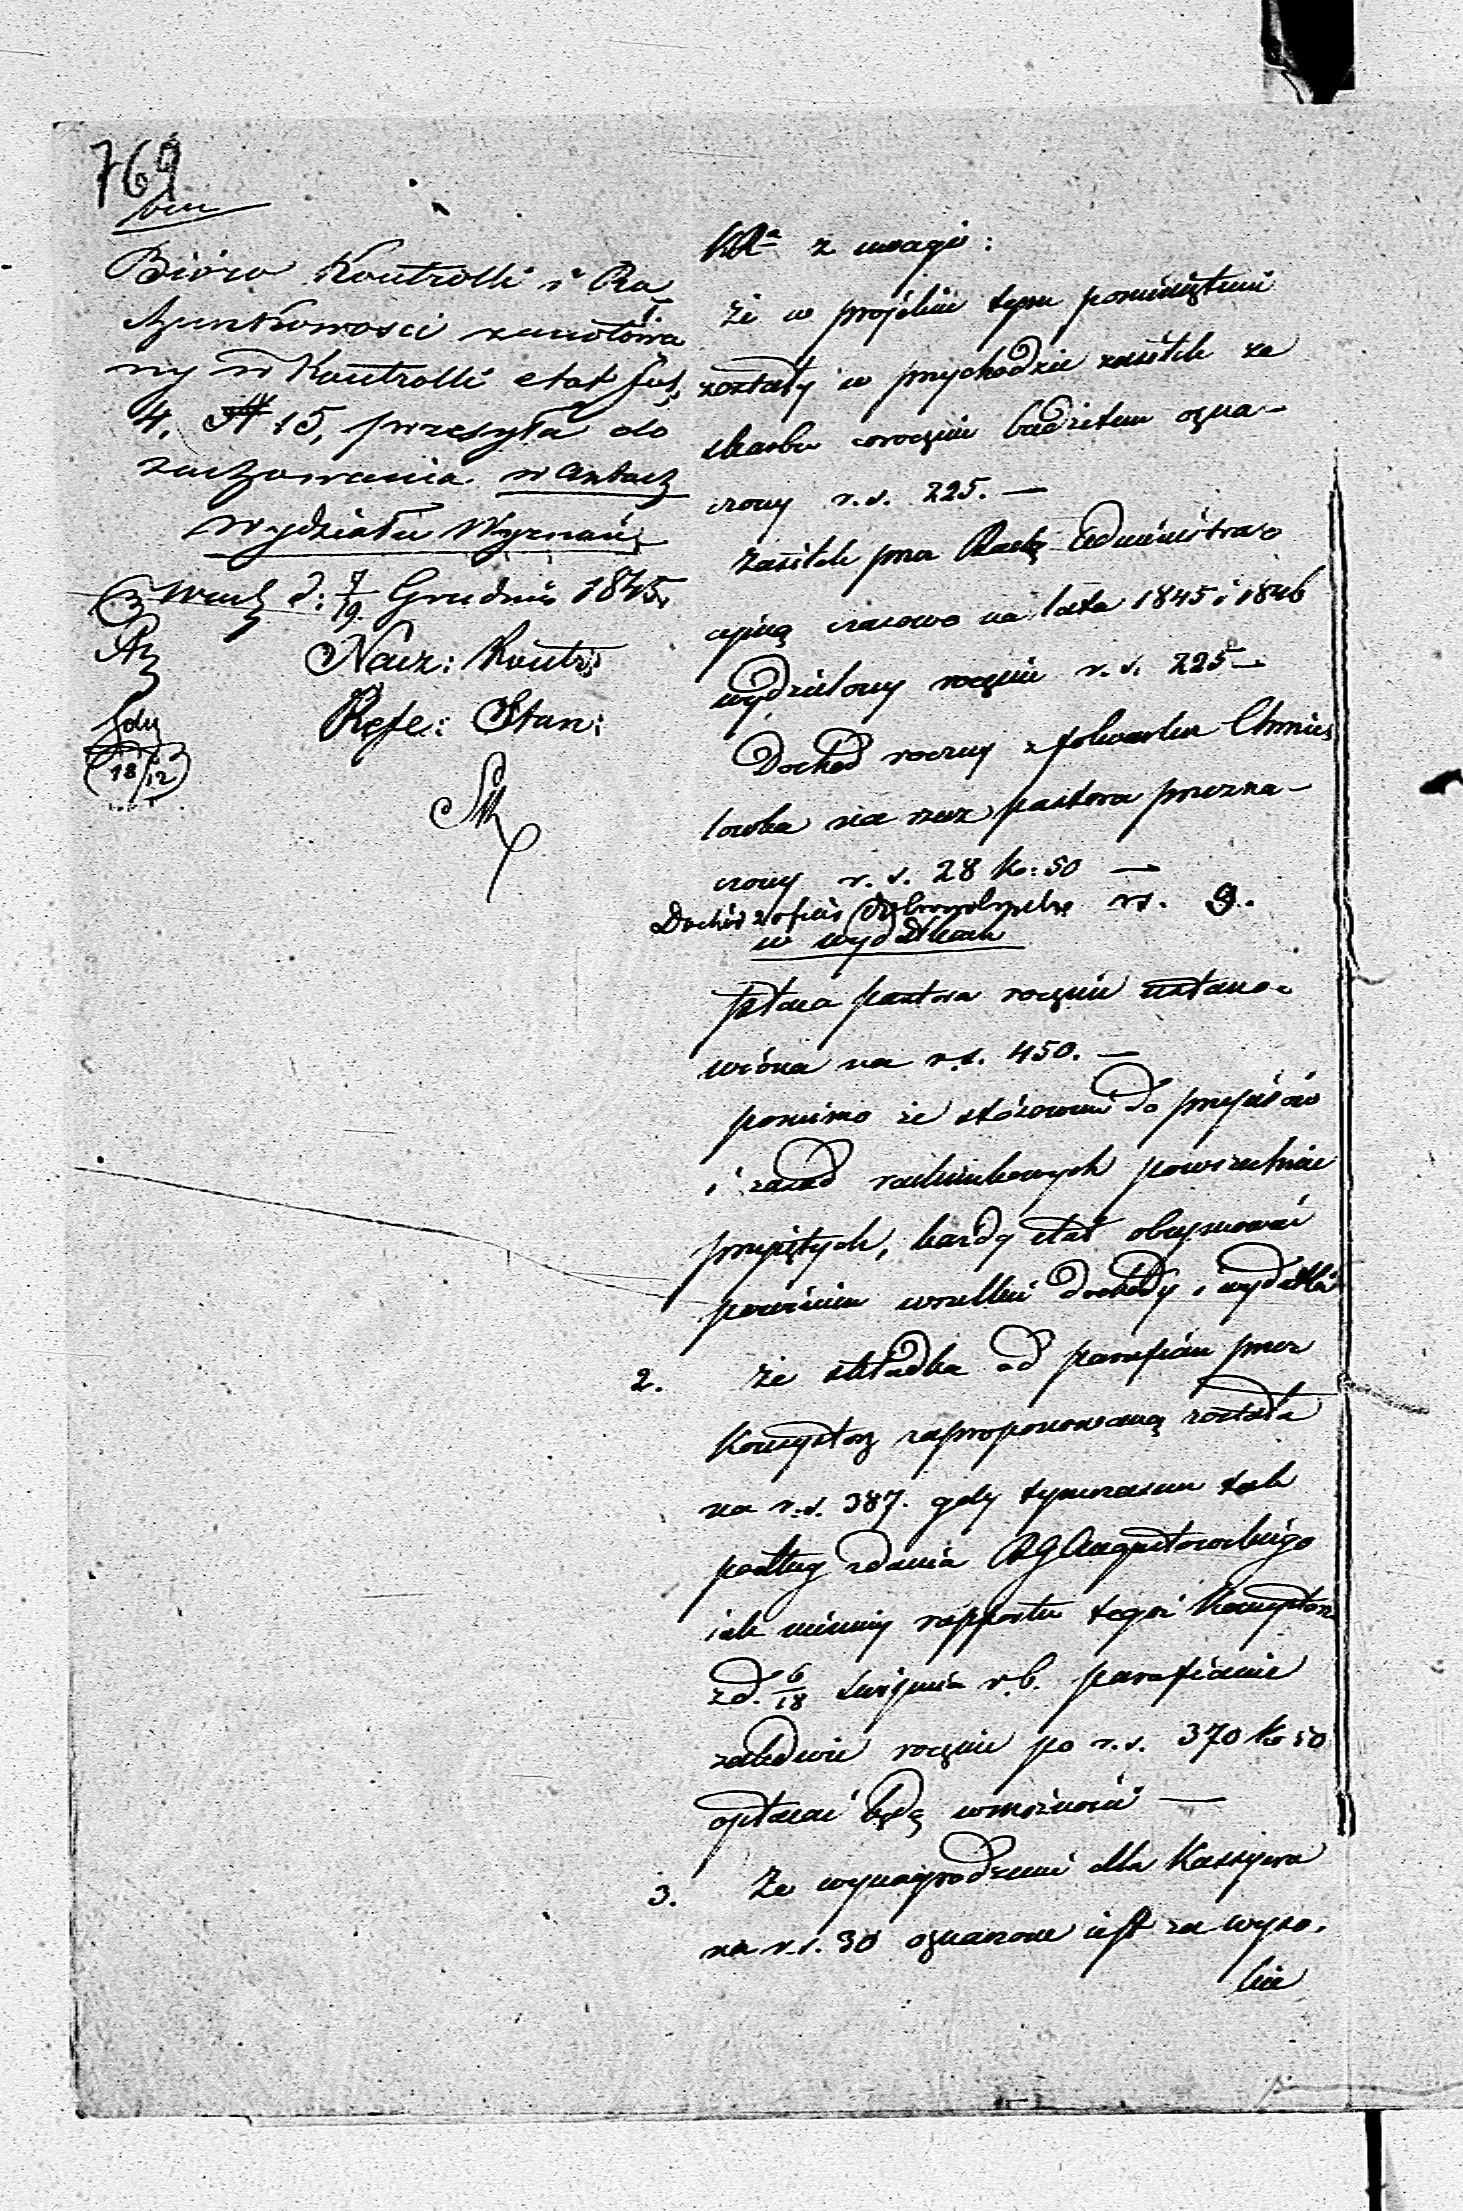 769
Bióro Kontrolli i Ra
chunkowosci zanotowa
ny w Kontrolli etat fol.
4. № 15, przesyła do
zachowania w aktach
Wydziału Wyznań
d: 7/19 Grudnia 1845.
Nacz: Kontr:
Refe: Stan:
18/12
KRz z uwagi:
1. że w projekcie tym pominiętemi
zostały w przychodzie zasiłek ze
skarbu corocznie budżetem ozna-
czony r. s. 225. —
Zasiłek przez Radę Administra-
cyjną czasowo na lata 1845 i 1846
wydzielony rocznie r. s. 225 —
Dochód roczny z folwarku
na rzecz pastora przezna-
czony r. s. 28 k: 50 —
Dochód z ofiar dobrowolnych rs. 9.
w wydatkach
płaca pastora rocznie ustano-
wiona na r. s. 450. —
pomimo że stósownie do przepisów
i zasad rachunkowych powszechnie
przyjętych, każdy etat obejmować
powinien wszelkie dochody i wydatki
2. że składka od parafian przez
Konsystorz zaproponowaną została
na r. s. 387. gdy tymczasem tak
podług zdania RG Augustowskiego
iak niemniej rapportu tegoż Konsystorza
z d. 6/18 sierpnia r. b. parafianie
zaledwie rocznie po r. s. 370 k 50
opłacać będą w możności —
3. Że wynagrodzenie dla Kassyera
na r. s. 30 oznaczone iest za wyso-
kie